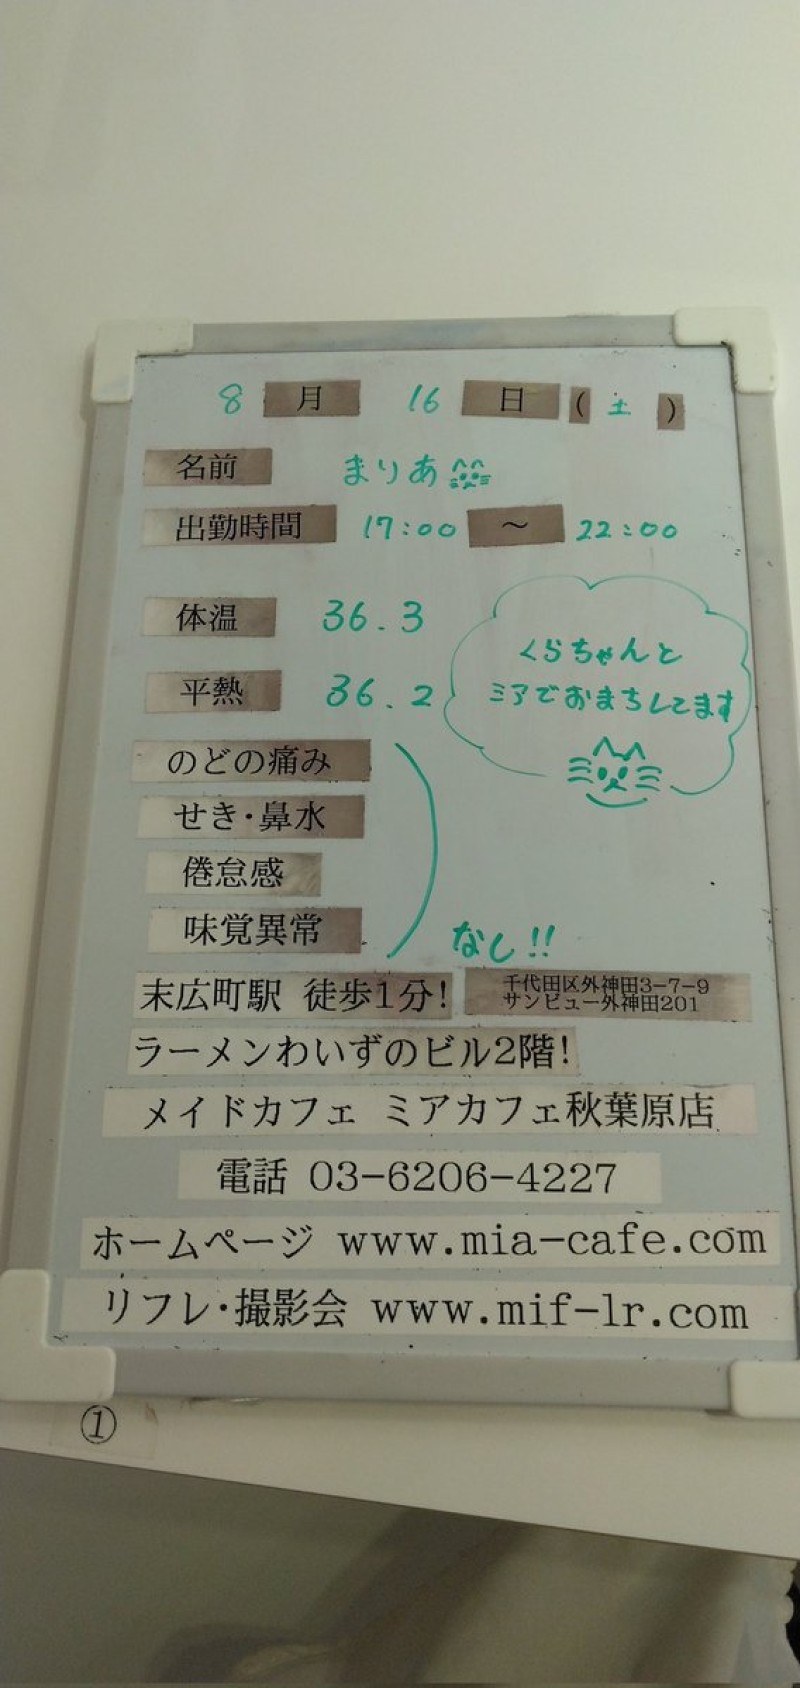 8月 16日(土)
名前 まりあ
出勤時間 17:00 ～ 22:00
体温 36.3
平熱 36.2
くらちゃんと
ミアでおまちしてます
のどの痛み
せき・鼻水
倦怠感
味覚異常
なし!!
末広町駅 徒歩1分!
千代田区外神田3-7-9
サンビュー外神田201
ラーメンわいずのビル2階!
メイドカフェ ミアカフェ秋葉原店
電話 03-6206-4227
ホームページ www.mia-cafe.com
リフレ・撮影会 www.mif-lr.com
①